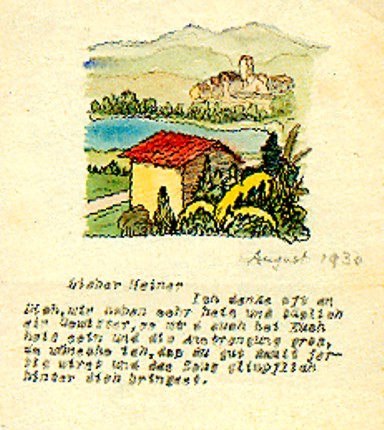 August 1930
Lieber Heiner
Ich denke oft an
Dich, wir haben sehr heis und täglich
ein Gewitter, es wird auch bei Euch
heis sein und die Anstrengung gros,
da wünsche ich, das du gut damit fer-
tig wirst und das Saug glüpflich
hinter dich bringest.